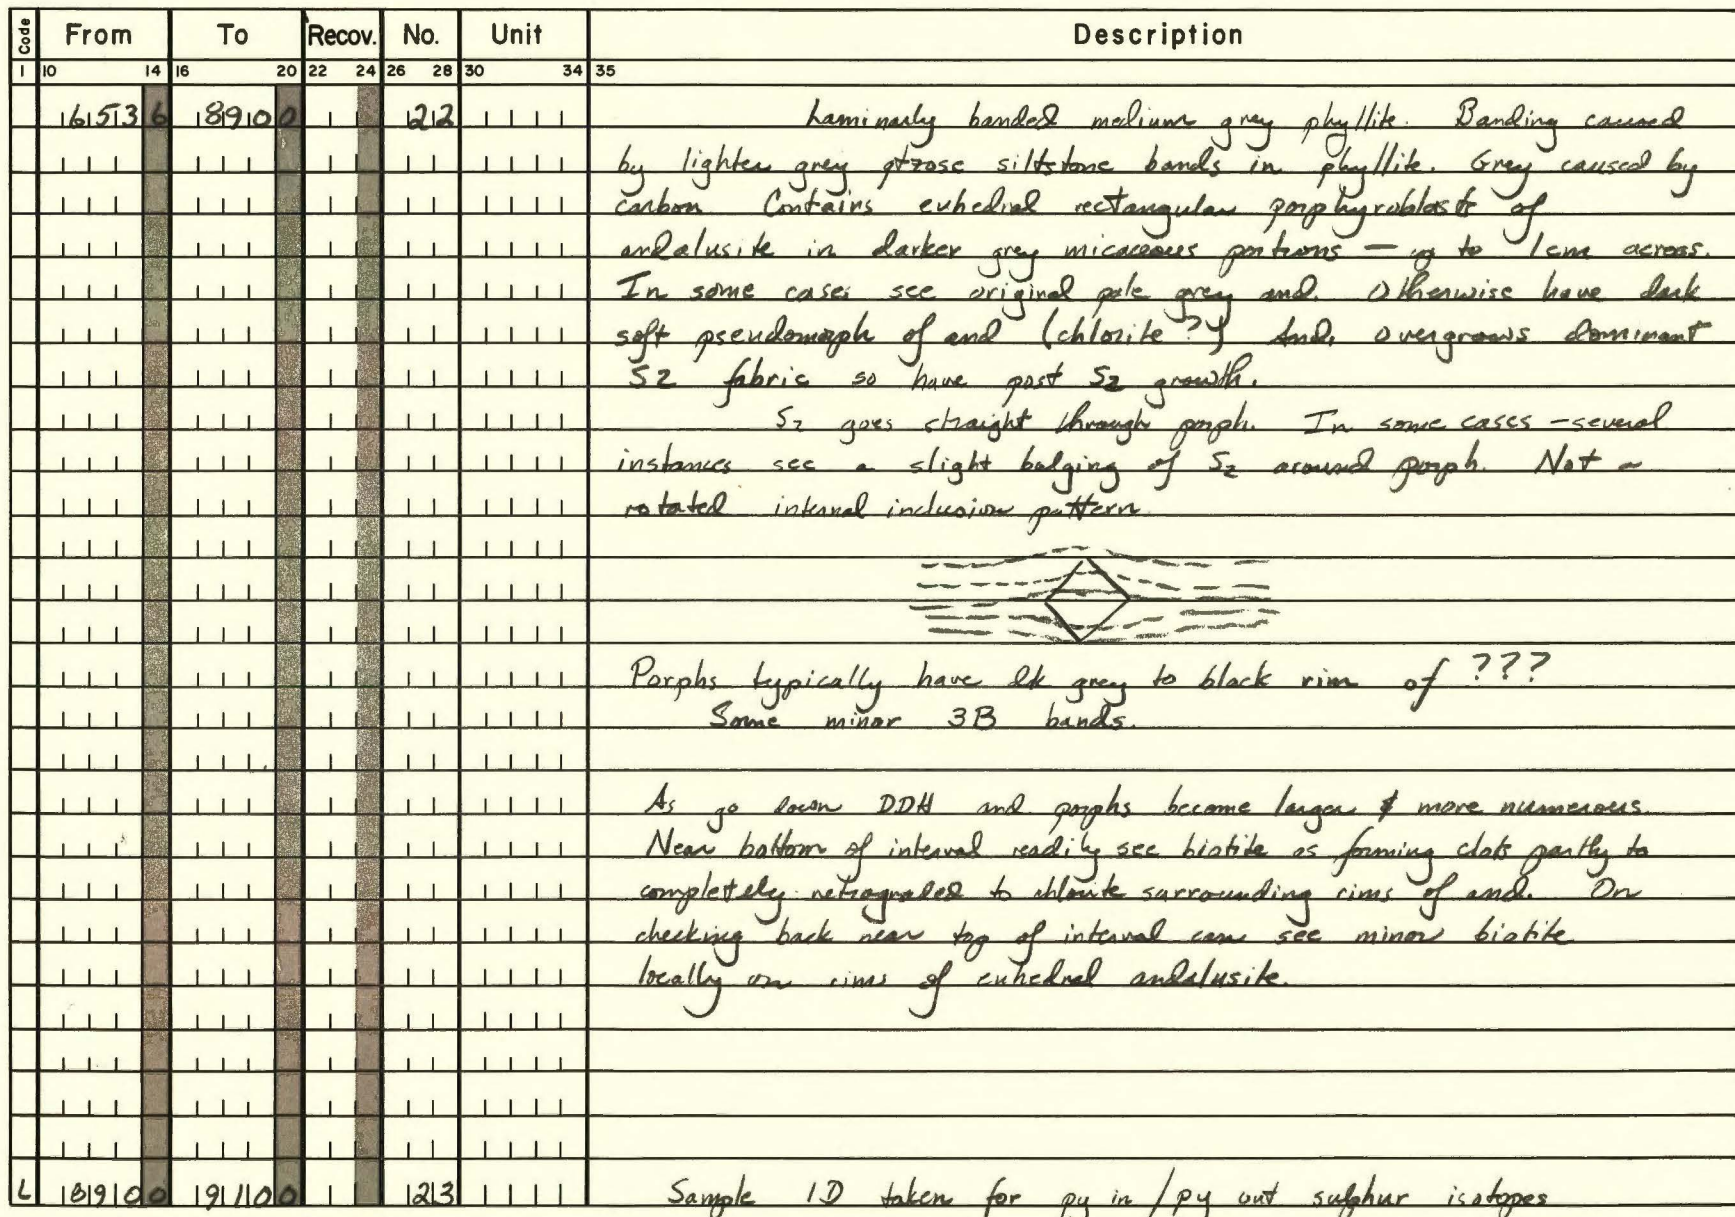 Code From To Recov. No. Unit Description
1 10 14 16 20 22 24 26 28 30 34 35
1653 6 1890 0 22 Laminarly banded medium grey phyllite. Banding caused
by lighter grey qtzose siltstone bands in phyllite. Grey caused by
carbon Contains euhedral rectangular porphyroblasts of
andalusite in darker grey micaceous portions - up to 1cm across.
In some cases see original pale grey and. Otherwise have dark
soft pseudomorph of and (chlorite?) And. overgrows dominant
S2 fabric so have post S2 growth.
S2 goes straight through porph. In some cases - several
instances see a slight bulging of S2 around porph. Not a
rotated internal inclusion pattern
Porphs typically have dk grey to black rim of ???
Some minor 3B bands.
As go down DDH and porphs become larger & more numerous.
Near bottom of interval readily see biotite as forming clots partly to
completely retrograded to chlorite surrounding rims of and. On
checking back near top of interval can see minor biotite
locally on rims of euhedral andalusite.
L 1890 0 1910 0 23 Sample 1D taken for py in / py out sulphur isotopes